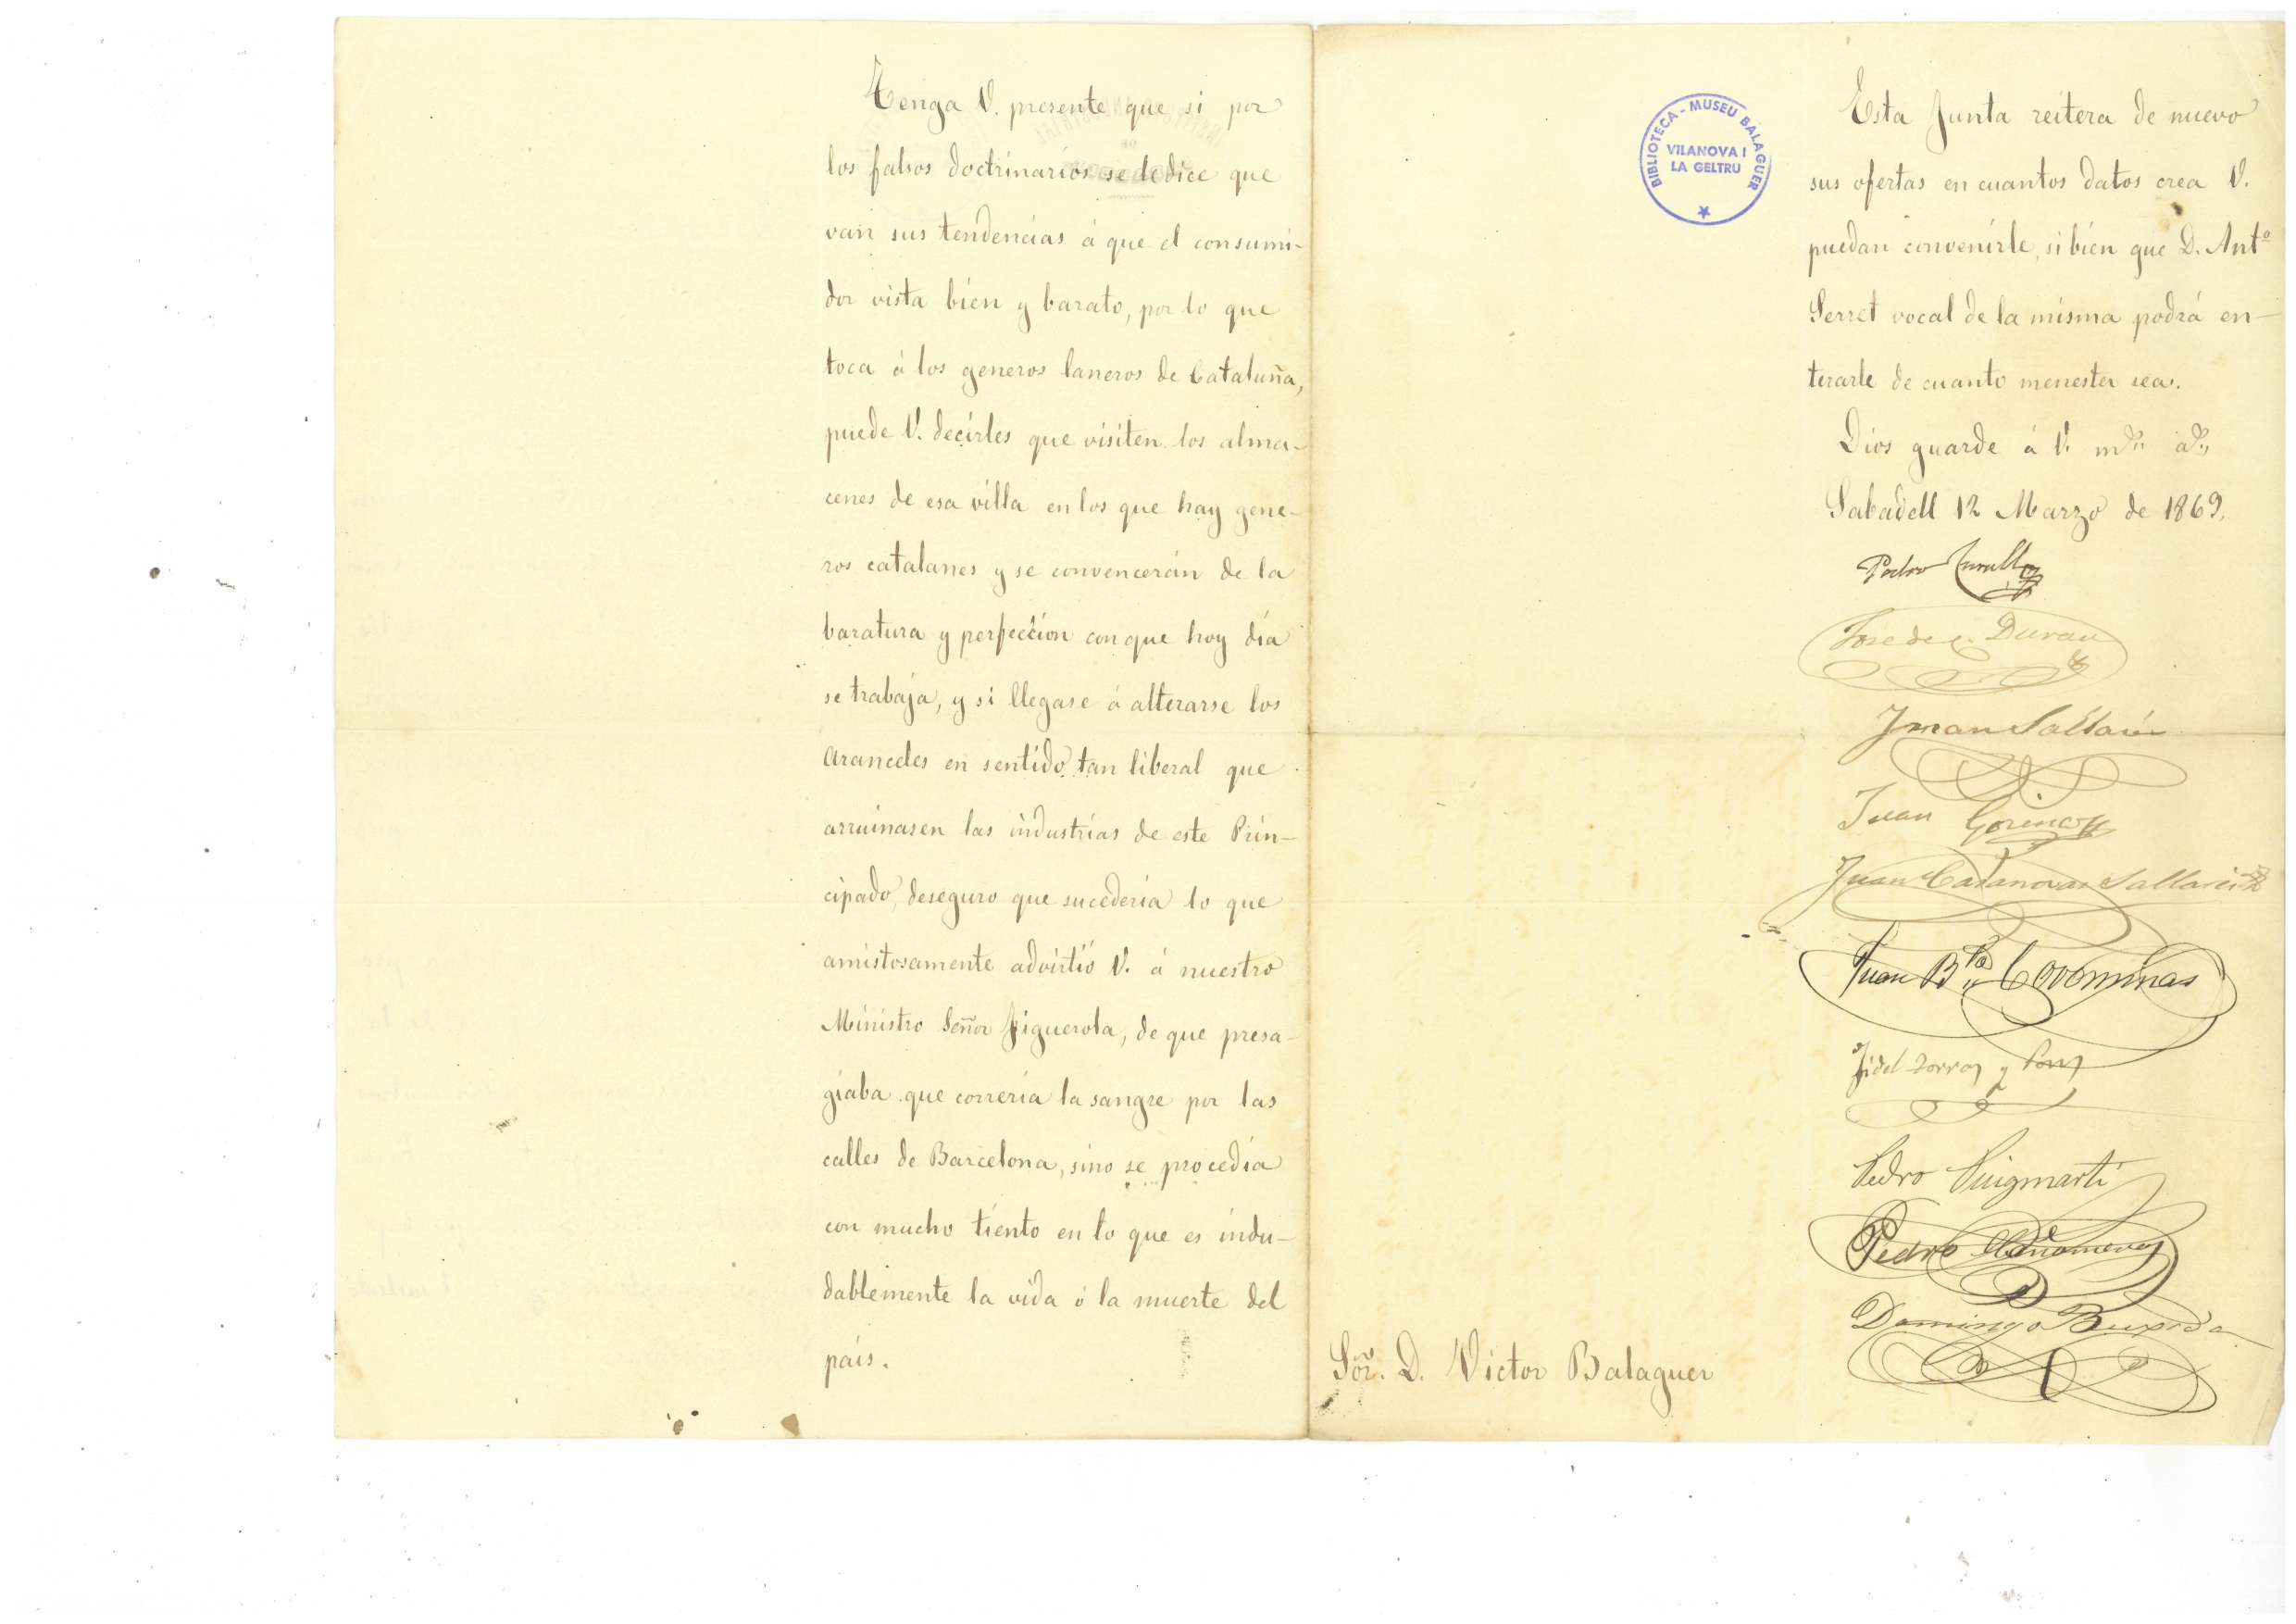 Tenga V. presente que si por
los falsos doctrinarios se le dice que
van sus tendencias á que el consumi-
dor vista bien y barato, por lo que
toca á los generos laneros de Cataluña,
puede V. decirles que visiten los alma-
cenes de esa villa en los que hay gene-
ros catalanes y se convencerán de la
baratura y perfeccion con que hoy dia
se trabaja, y si llegase á alterarse los
aranceles en sentido tan liberal que
arruinasen las industrias de este Prin-
cipado, deseguro que sucederia lo que
amistosamente advirtió V. á nuestro
Ministro Señor Figuerola, de que presa-
giaba que correria la sangre por las
calles de Barcelona, sino se procedia
con mucho tiento en lo que es indu-
dablemente la vida ó la muerte del
pais.
BIBLIOTECA - MUSEU BALAGUER
VILANOVA I
LA GELTRU
Esta Junta reitera de nuevo
sus ofertas en cuantos datos crea V.
puedan convenirle, si bien que D. Antº
Serret vocal de la misma podrá en-
terarle de cuanto menester sea.
Dios guarde á V. mˢ aˢ
Sabadell 12 Marzo de 1869.
Pedro Turull
José de C. Duran
Juan Sallarés
Juan Gorina
Juan Casanovas Sallarés
Juan Bta Corominas
Fidel Torras y Pons
Pedro Puigmartí
Pedro
Domingo Buxeda
Sor. D. Victor Balaguer